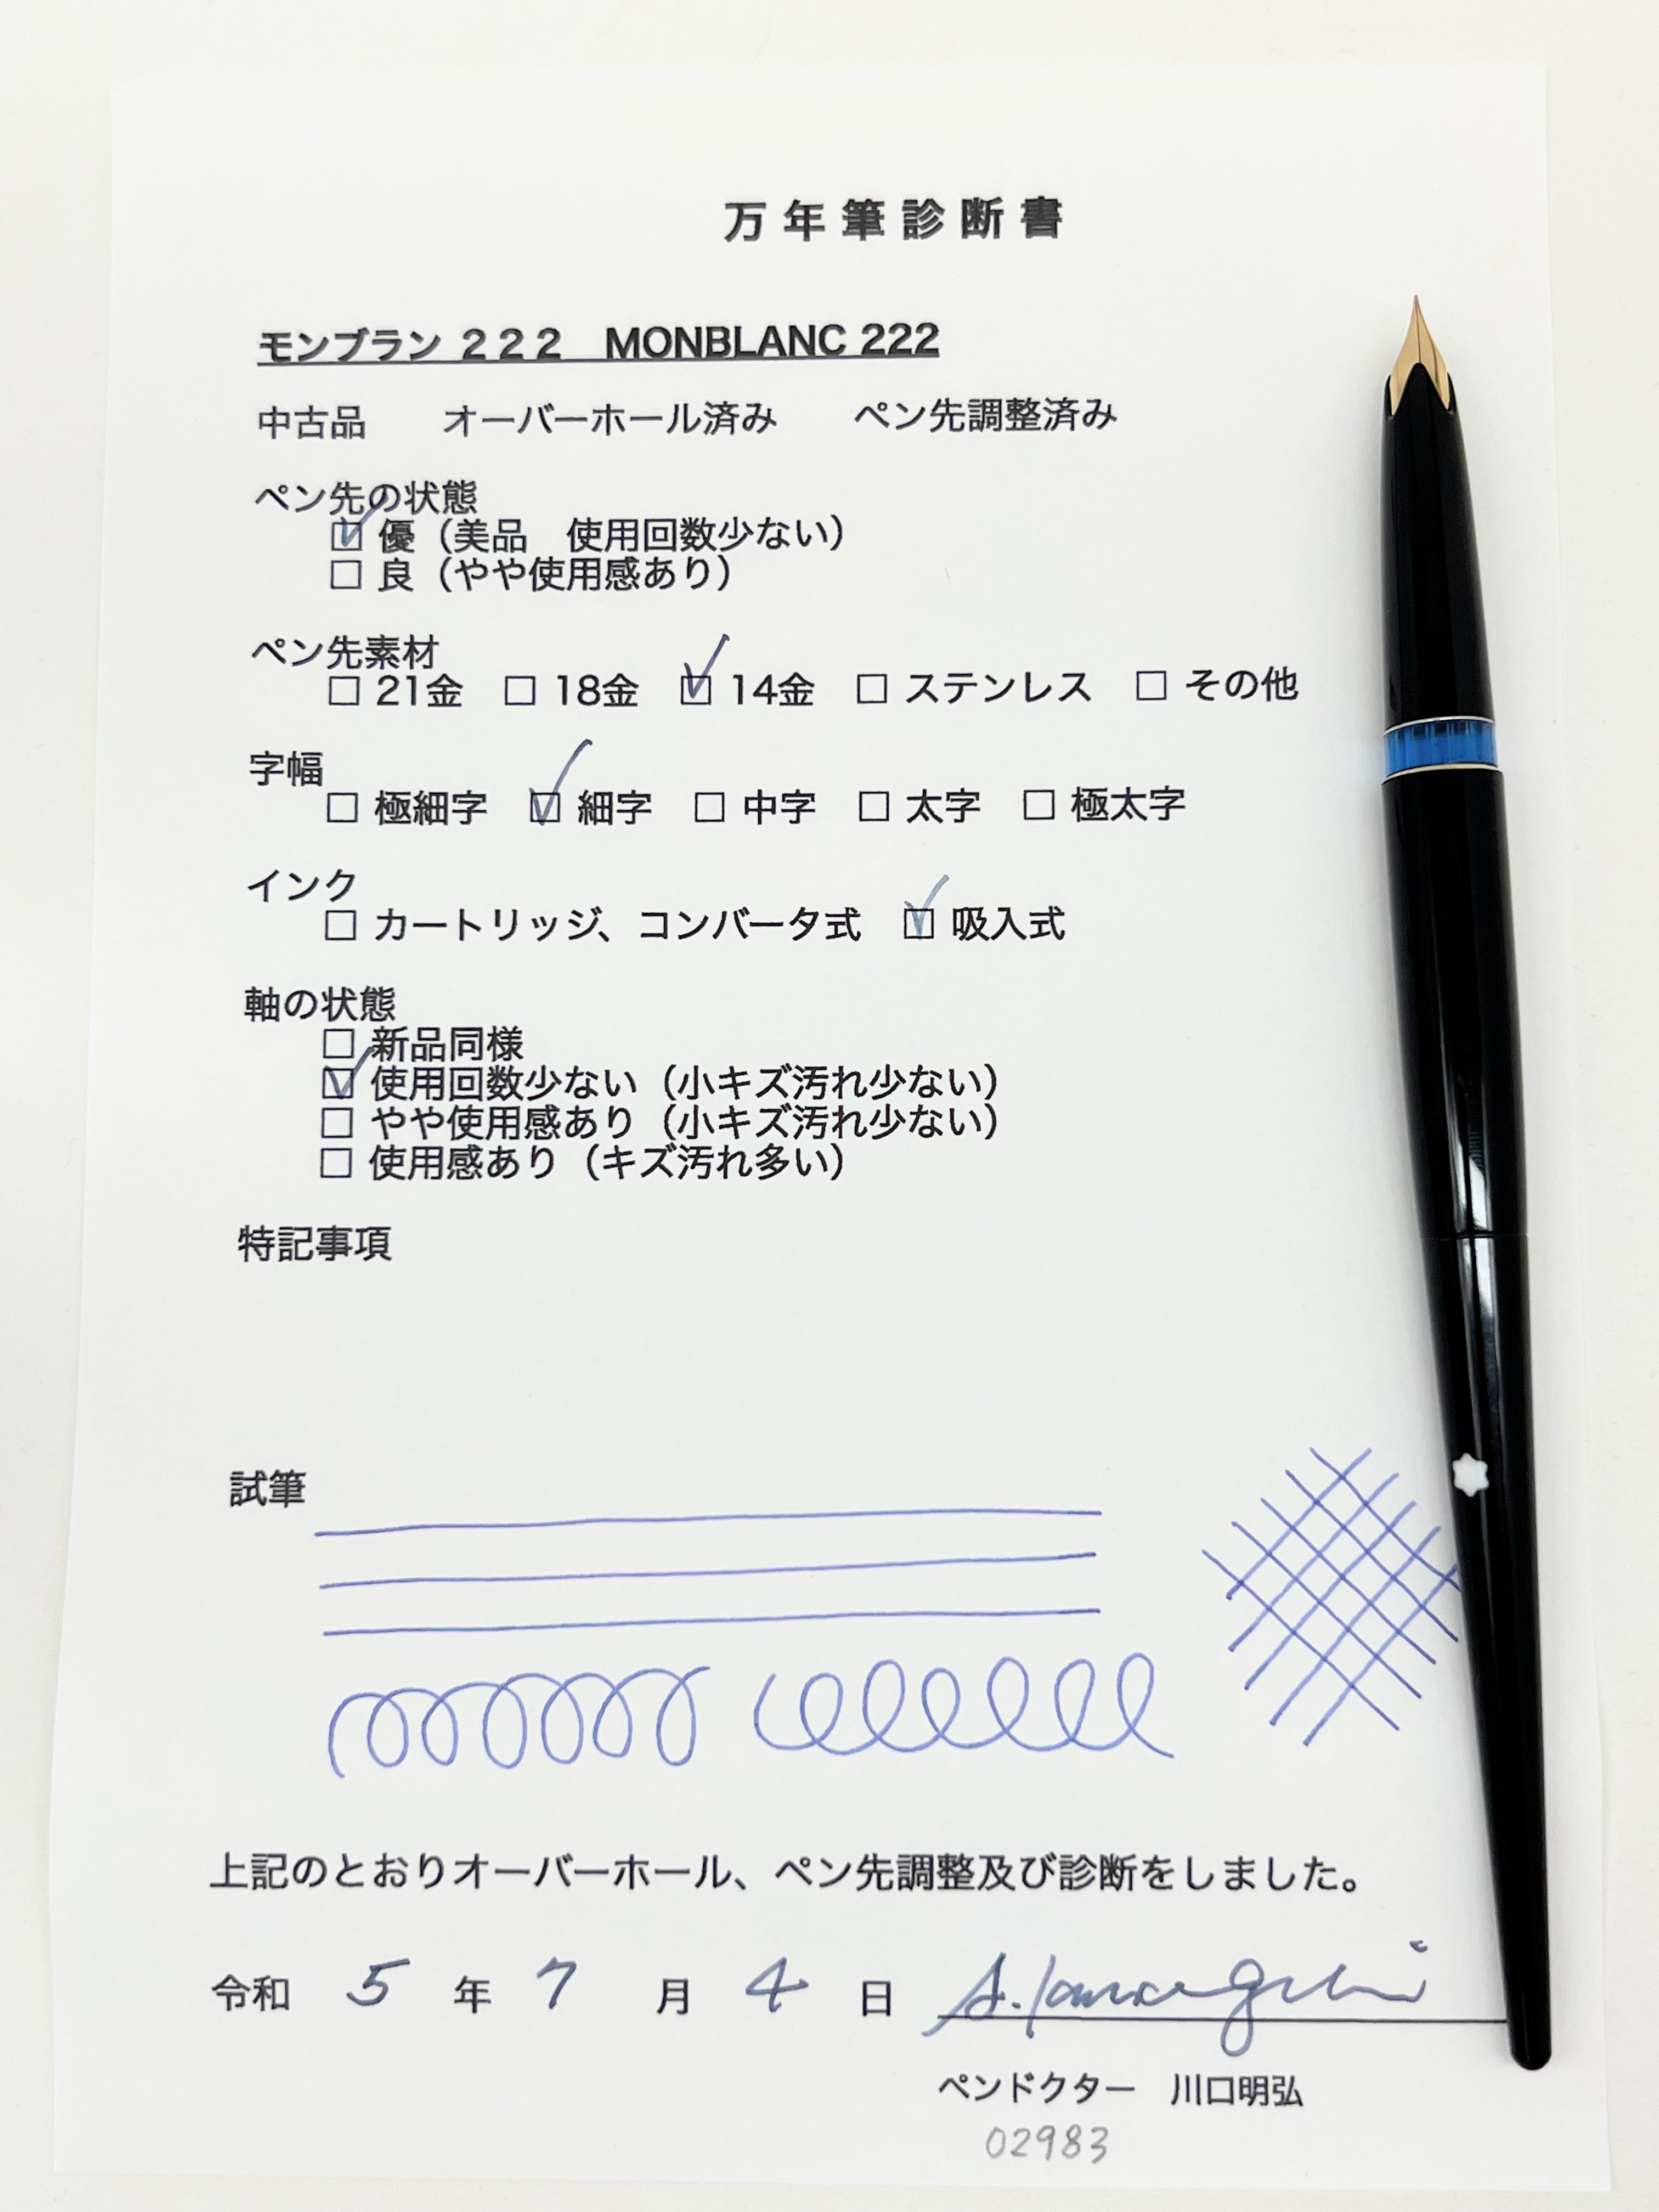 万年筆診断書
モンブラン ２２２　MONBLANC 222
中古品　オーバーホール済み　ペン先調整済み
ペン先の状態
☑ 優（美品　使用回数少ない）
☐ 良（やや使用感あり）
ペン先素材
☐ 21金　☐ 18金　☑ 14金　☐ ステンレス　☐ その他
字幅
☐ 極細字　☑ 細字　☐ 中字　☐ 太字　☐ 極太字
インク
☐ カートリッジ、コンバータ式　☑ 吸入式
軸の状態
☐ 新品同様
☑ 使用回数少ない（小キズ汚れ少ない）
☐ やや使用感あり（小キズ汚れ少ない）
☐ 使用感あり（キズ汚れ多い）
特記事項
試筆
上記のとおりオーバーホール、ペン先調整及び診断をしました。
令和 5 年 7 月 4 日
ペンドクター　川口明弘
02983